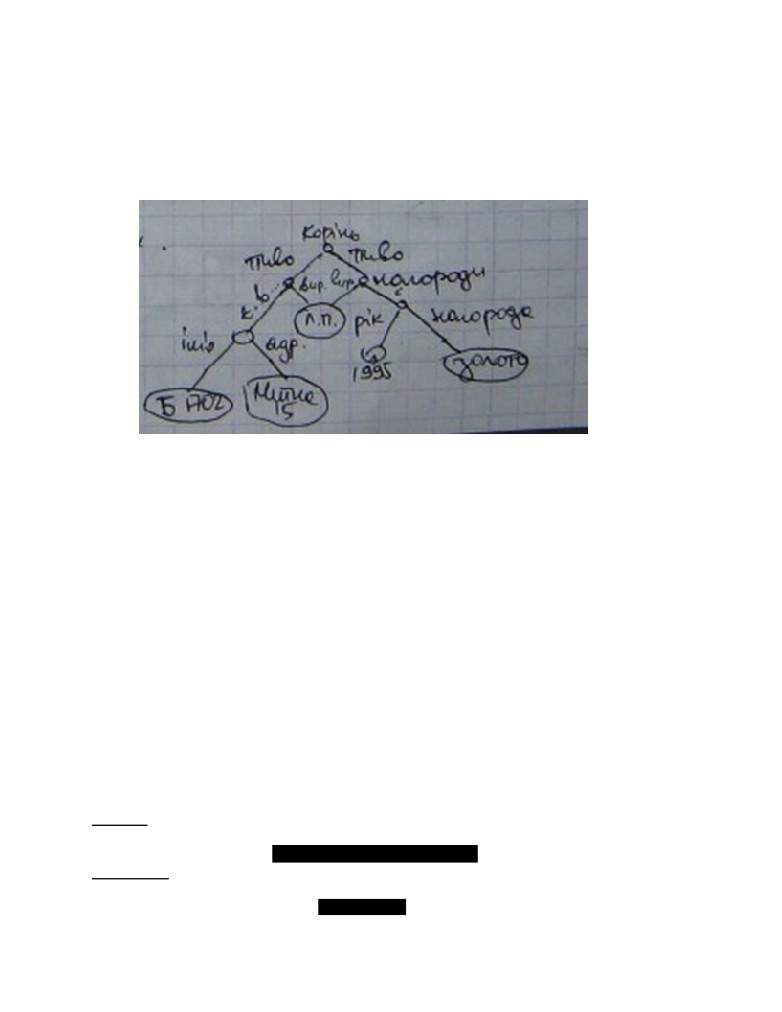 корінь
пиво пиво
вир. вир. нагороди
л.п. рік нагорода
ім'я адр.
1995 золото
Б 1702
5